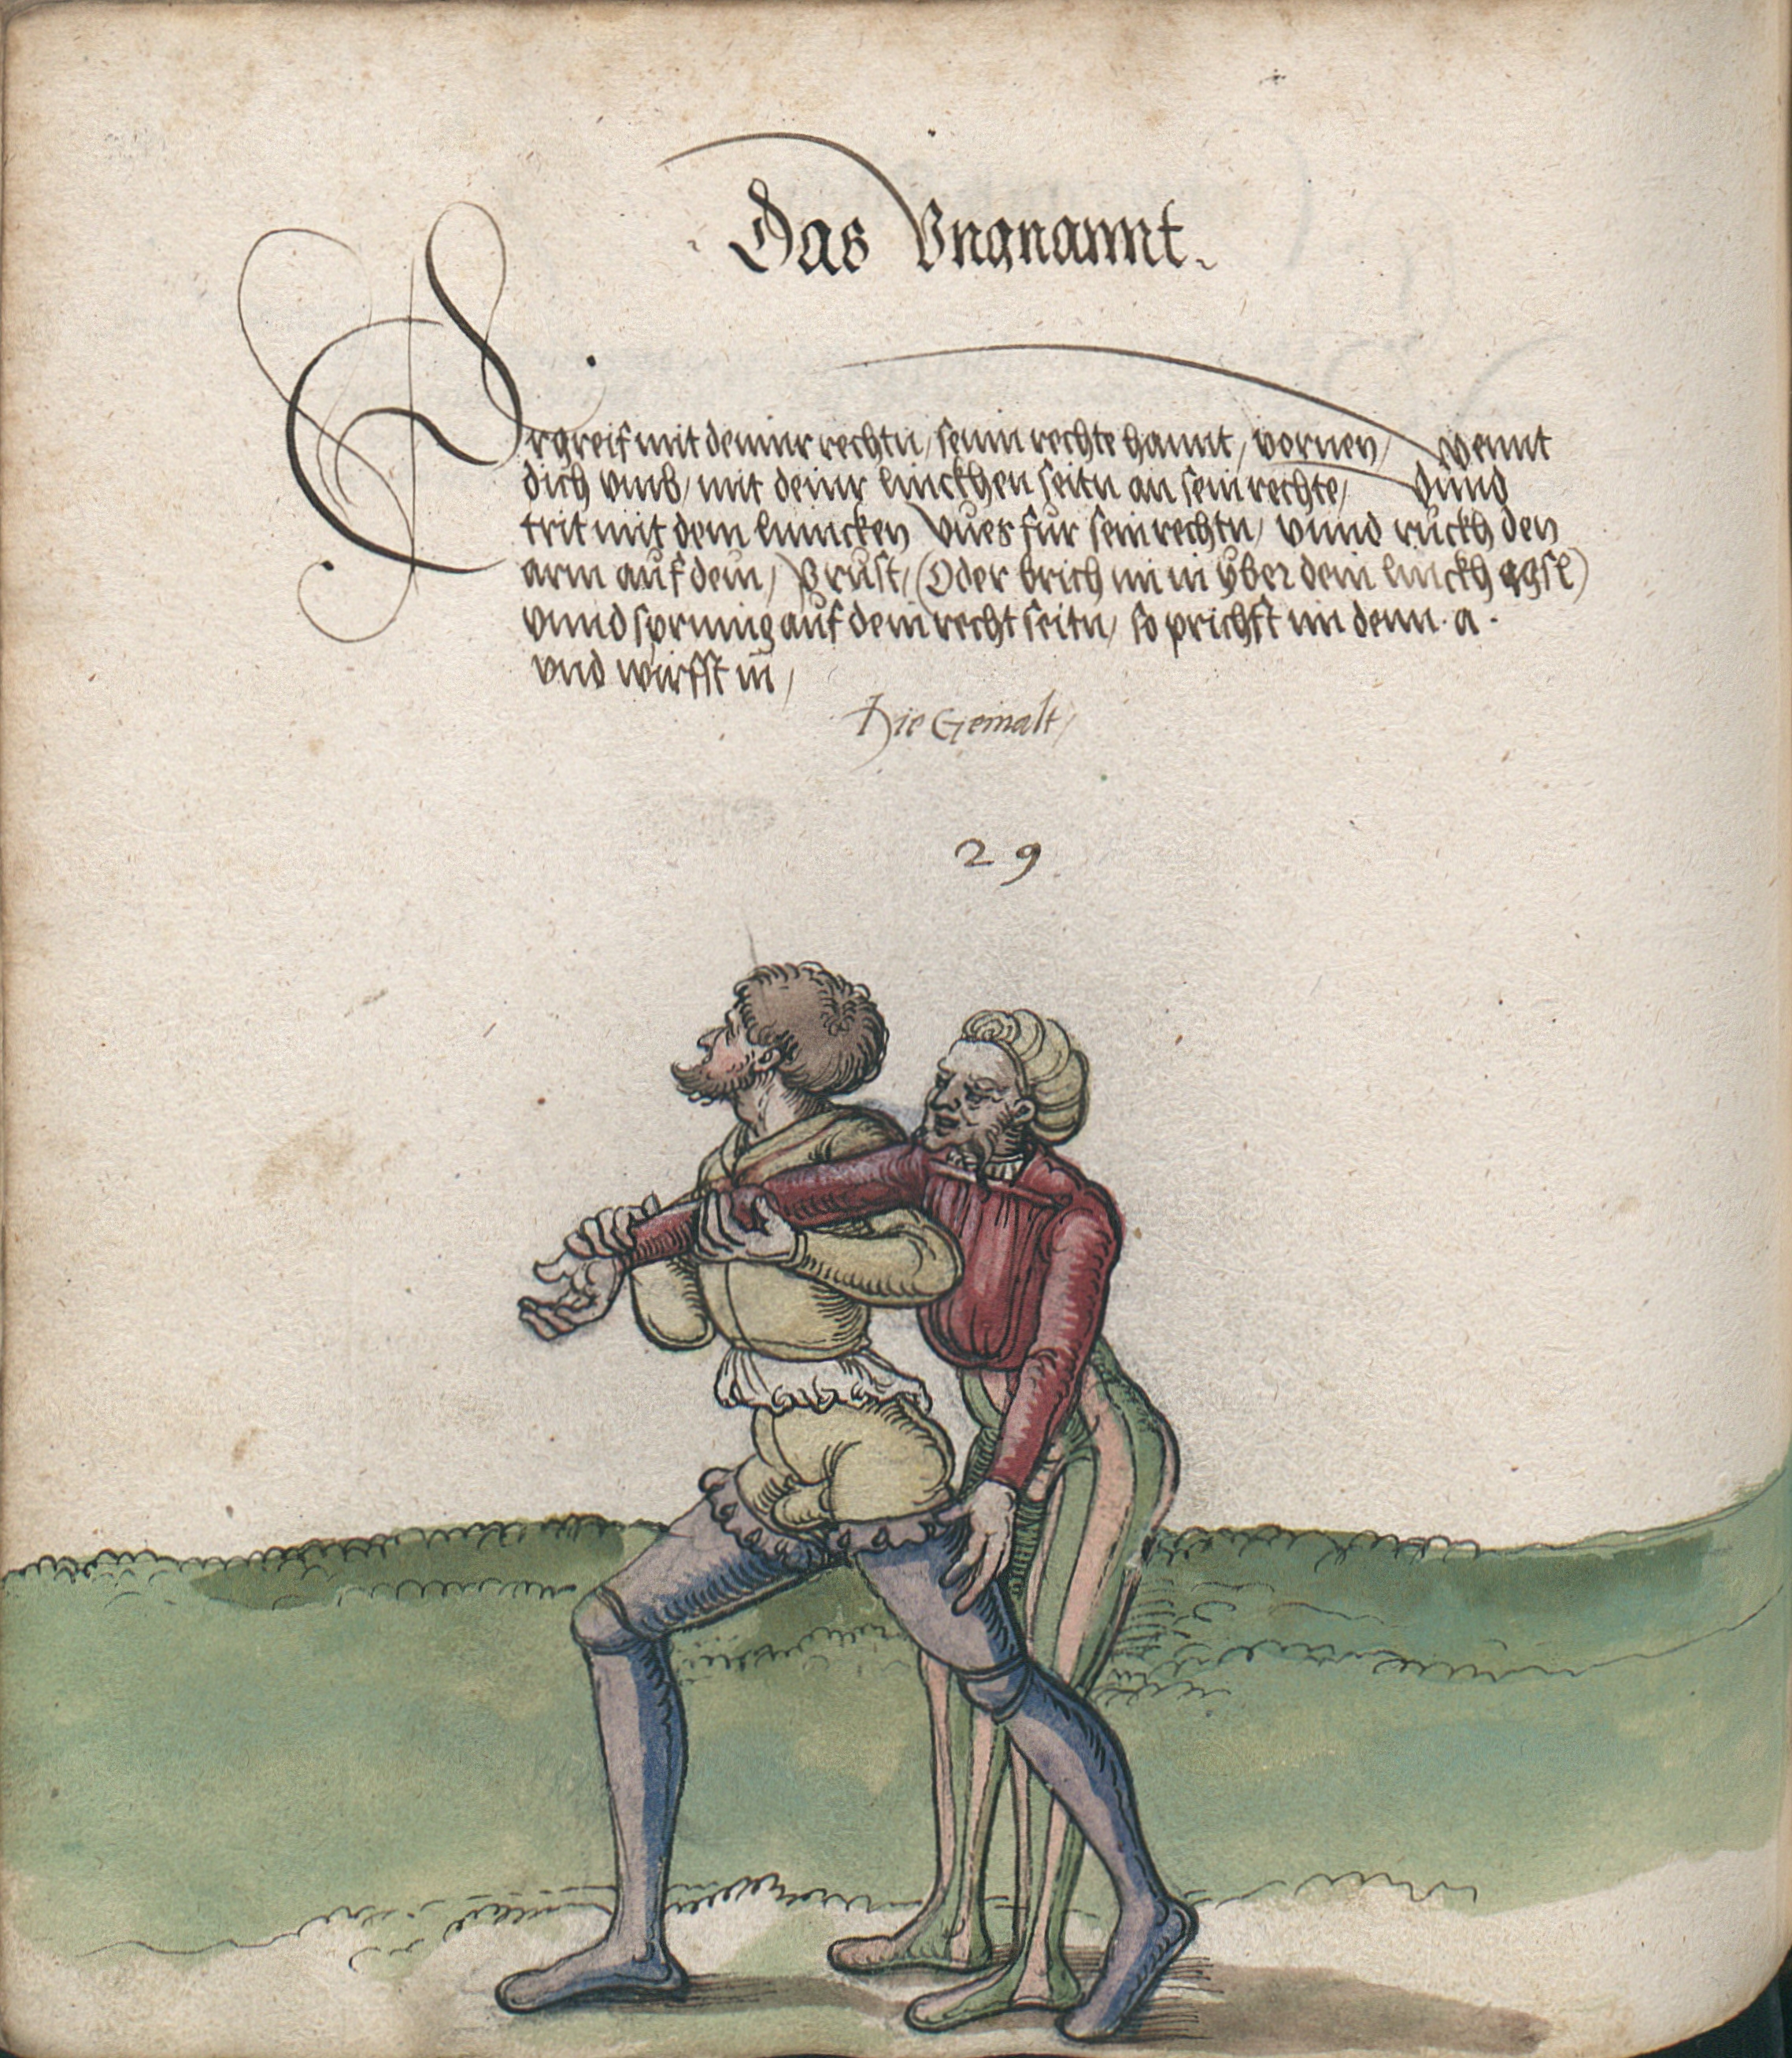 Das Vngnannt.
Ergreif mit deiner rechtn / seinn rechte hannt / vornen / wennt
dich vmb / mit deinr linckhen seitn an sein rechte / vnnd
trit mit dem linncken Vues fur sein rechtn / vnnd ruckh den
arm auf dein / Prust / (Oder brich im in yber dein linckh agsl)
vnnd sprinng auf dein recht seitn / so prichst im denn · a ·
vnd wirfst in /
Hie Gemalt /
29